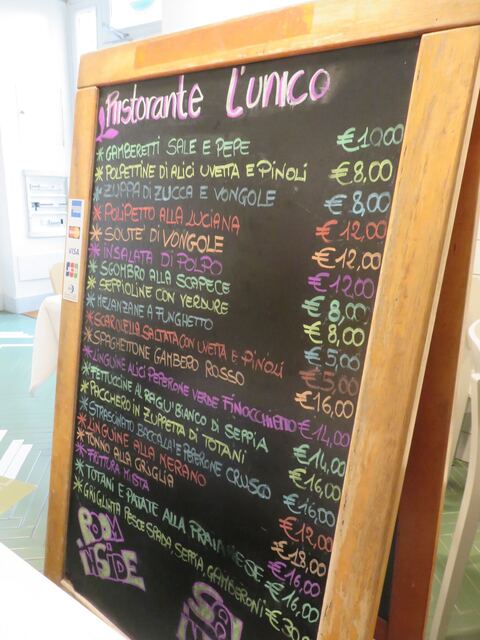 Ristorante L'unico
* GAMBERETTI SALE E PEPE €10,00
* POLPETTINE DI ALICI UVETTA E PINOLI €8,00
* ZUPPA DI ZUCCA E VONGOLE €8,00
* POLIPETTO ALLA LUCIANA €12,00
* SOUTE' DI VONGOLE €12,00
* INSALATA DI POLPO €12,00
* SGOMBRO ALLA SCAPECE €8,00
* SEPPIOLINE CON VERDURE €8,00
* MELANZANE A FUNGHETTO €5,00
* SCAROLELLA SALTATA CON UVETTA E PINOLI €5,00
* SPAGHETTONE GAMBERO ROSSO €16,00
* LINGUINE ALICI PEPERONE VERDE FINOCCHIETTO €14,00
* FETTUCCINE AL RAGU' BIANCO DI SEPPIA €14,00
* PACCHERO IN ZUPPETTA DI TOTANI €16,00
* STRASCINATO BACCALA' E PEPERONE CRUSCO €16,00
* LINGUINE ALLA NERANO €12,00
* TONNO ALLA GRIGLIA €18,00
* FRITTURA MISTA €16,00
* TOTANI E PATATE ALLA PRAIANESE €16,00
* GRIGLIATA PESCE SPADA, SEPPIA, GAMBERONI €30,00
ROOM
INSIDE
VISA
JCB